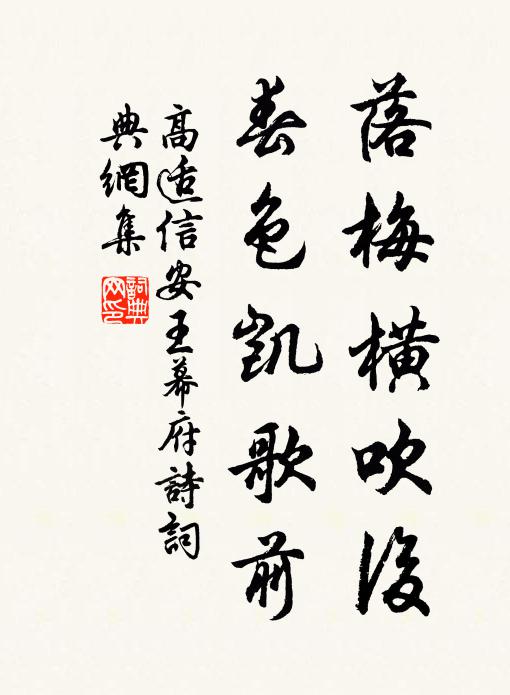 落梅橫吹後
春色凱歌前
高適信安王幕府詩詞
典網集
詞典
网印